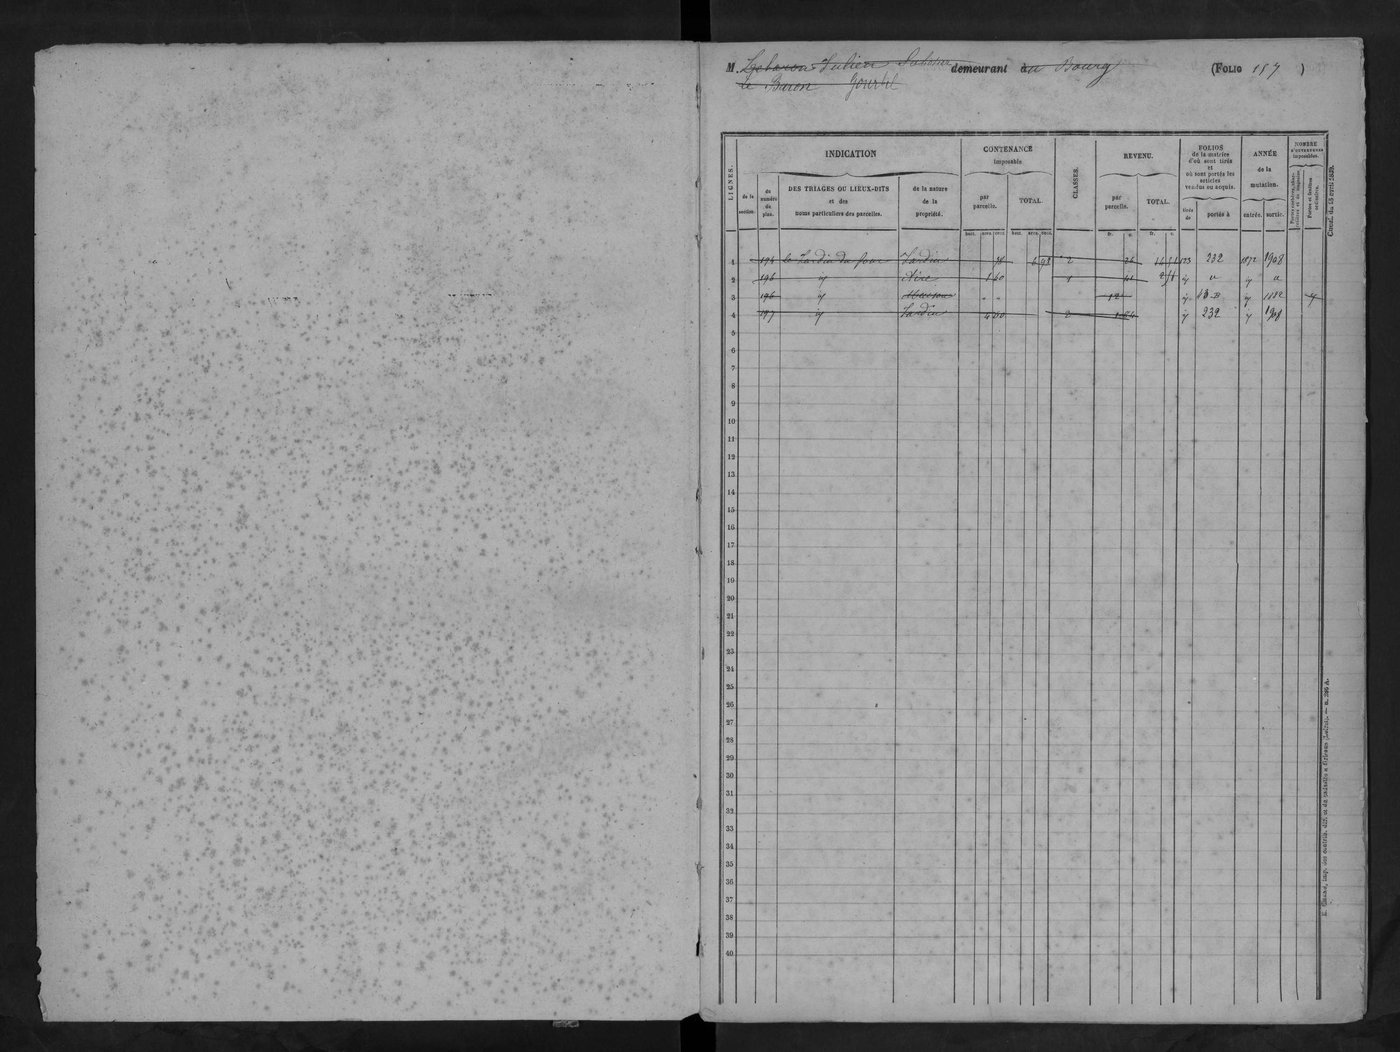 M. Lebaron Julien demeurant au Bourg (FOLIO 187 )
le Baron Gourbil
LIGNES.
INDICATION
de la section.
du numéro du plan.
DES TRIAGES OU LIEUX-DITS
et des
noms particuliers des parcelles.
de la nature
de la
propriété.
CONTENANCE
imposable
par parcelle.
TOTAL.
hect. ares. cent. hect. ares. cent.
CLASSES.
REVENU.
par parcelle.
TOTAL.
fr. c. fr. c.
FOLIOS
de la matrice
d'où sont tirés
et
où sont portés les
articles
vendus ou acquis.
tirés de
portés à
ANNÉE
de la
mutation.
entrée. sortie.
NOMBRE
D'OUVERTURES
imposables.
Portes et fenêtres ordinaires.
Circul. du 15 avril 1839.
1 194 le Jardin du four Jardin 2 232 1872 1908
2 195 y Aire 1 60 1 y " y "
3 196 y 12 y y 1882
4 197 y Jardin 4 50 2 y 232 y 1908
5
6
7
8
9
10
11
12
13
14
15
16
17
18
19
20
21
22
23
24
25
26
27
28
29
30
31
32
33
34
35
36
37
38
39
40